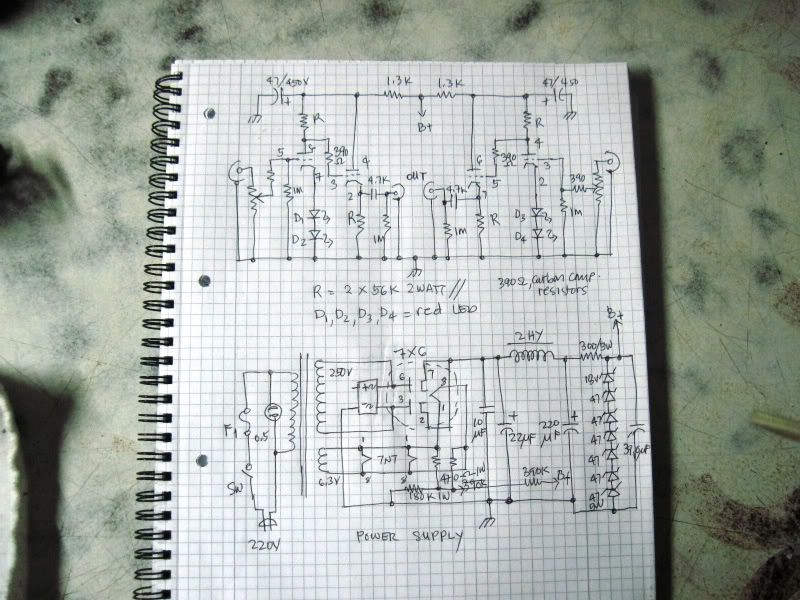 47/450V
1.3K
1.3K
47/450
+
+
R
B+
R
5
6
390
Ω
4
OUT
6
390
Ω
4
3
7
3
2
4.7K
4.7K
5
7
2
390
1M
D1
D2
R
1M
1M
R
D3
D4
1M
R = 2 x 56K 2WATT //
390Ω, carbon comp.
resistors
D1, D2, D3, D4 = red LED
B+
7X6
2HY
300/5W
250V
6
7
3
2
8
18V
47
47
47
47
47
47
5W
F1
0.5
10
µF
+
22µF
220
µF
+
7N7
1
1
8
8
6.3V
470Ω 1W
390K
390K
B+
180K 1W
SW
220V
POWER SUPPLY